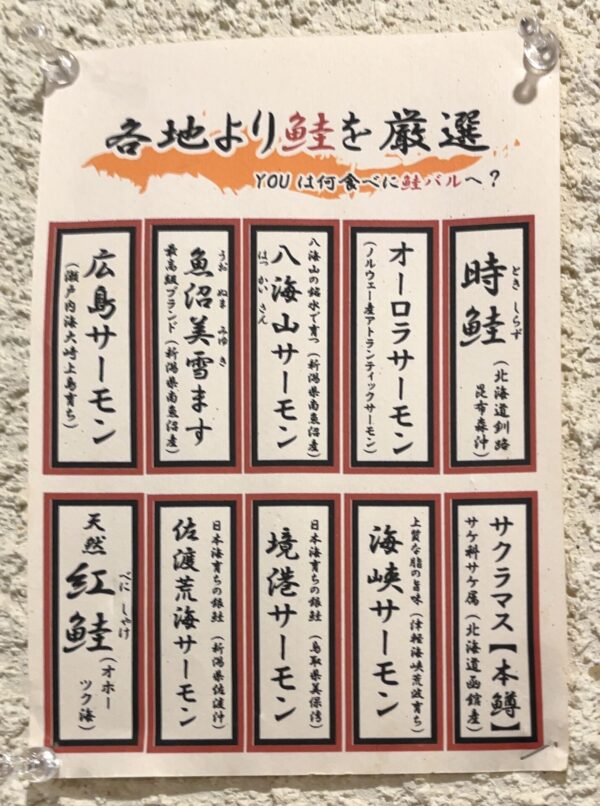 各地より鮭を厳選
YOUは何食べに鮭バルへ？
時鮭
とき しらず
（北海道釧路
昆布森沖）
オーロラサーモン
（ノルウェー産アトランティックサーモン）
八海山の銘水で育つ（新潟県南魚沼産）
八海山サーモン
はっ かい さん
魚沼美雪ます
うお ぬま み ゆき
最高級ブランド（新潟県南魚沼産）
広島サーモン
（瀬戸内海大崎上島育ち）
サクラマス【本鱒】
サケ科サケ属（北海道函館産）
上質な脂の旨味（津軽海峡荒波育ち）
海峡サーモン
日本海育ちの銀鮭（鳥取県美保湾）
境港サーモン
日本海育ちの銀鮭（新潟県佐渡沖）
佐渡荒海サーモン
天然紅鮭
べに しゃけ
（オホー
ツク海）